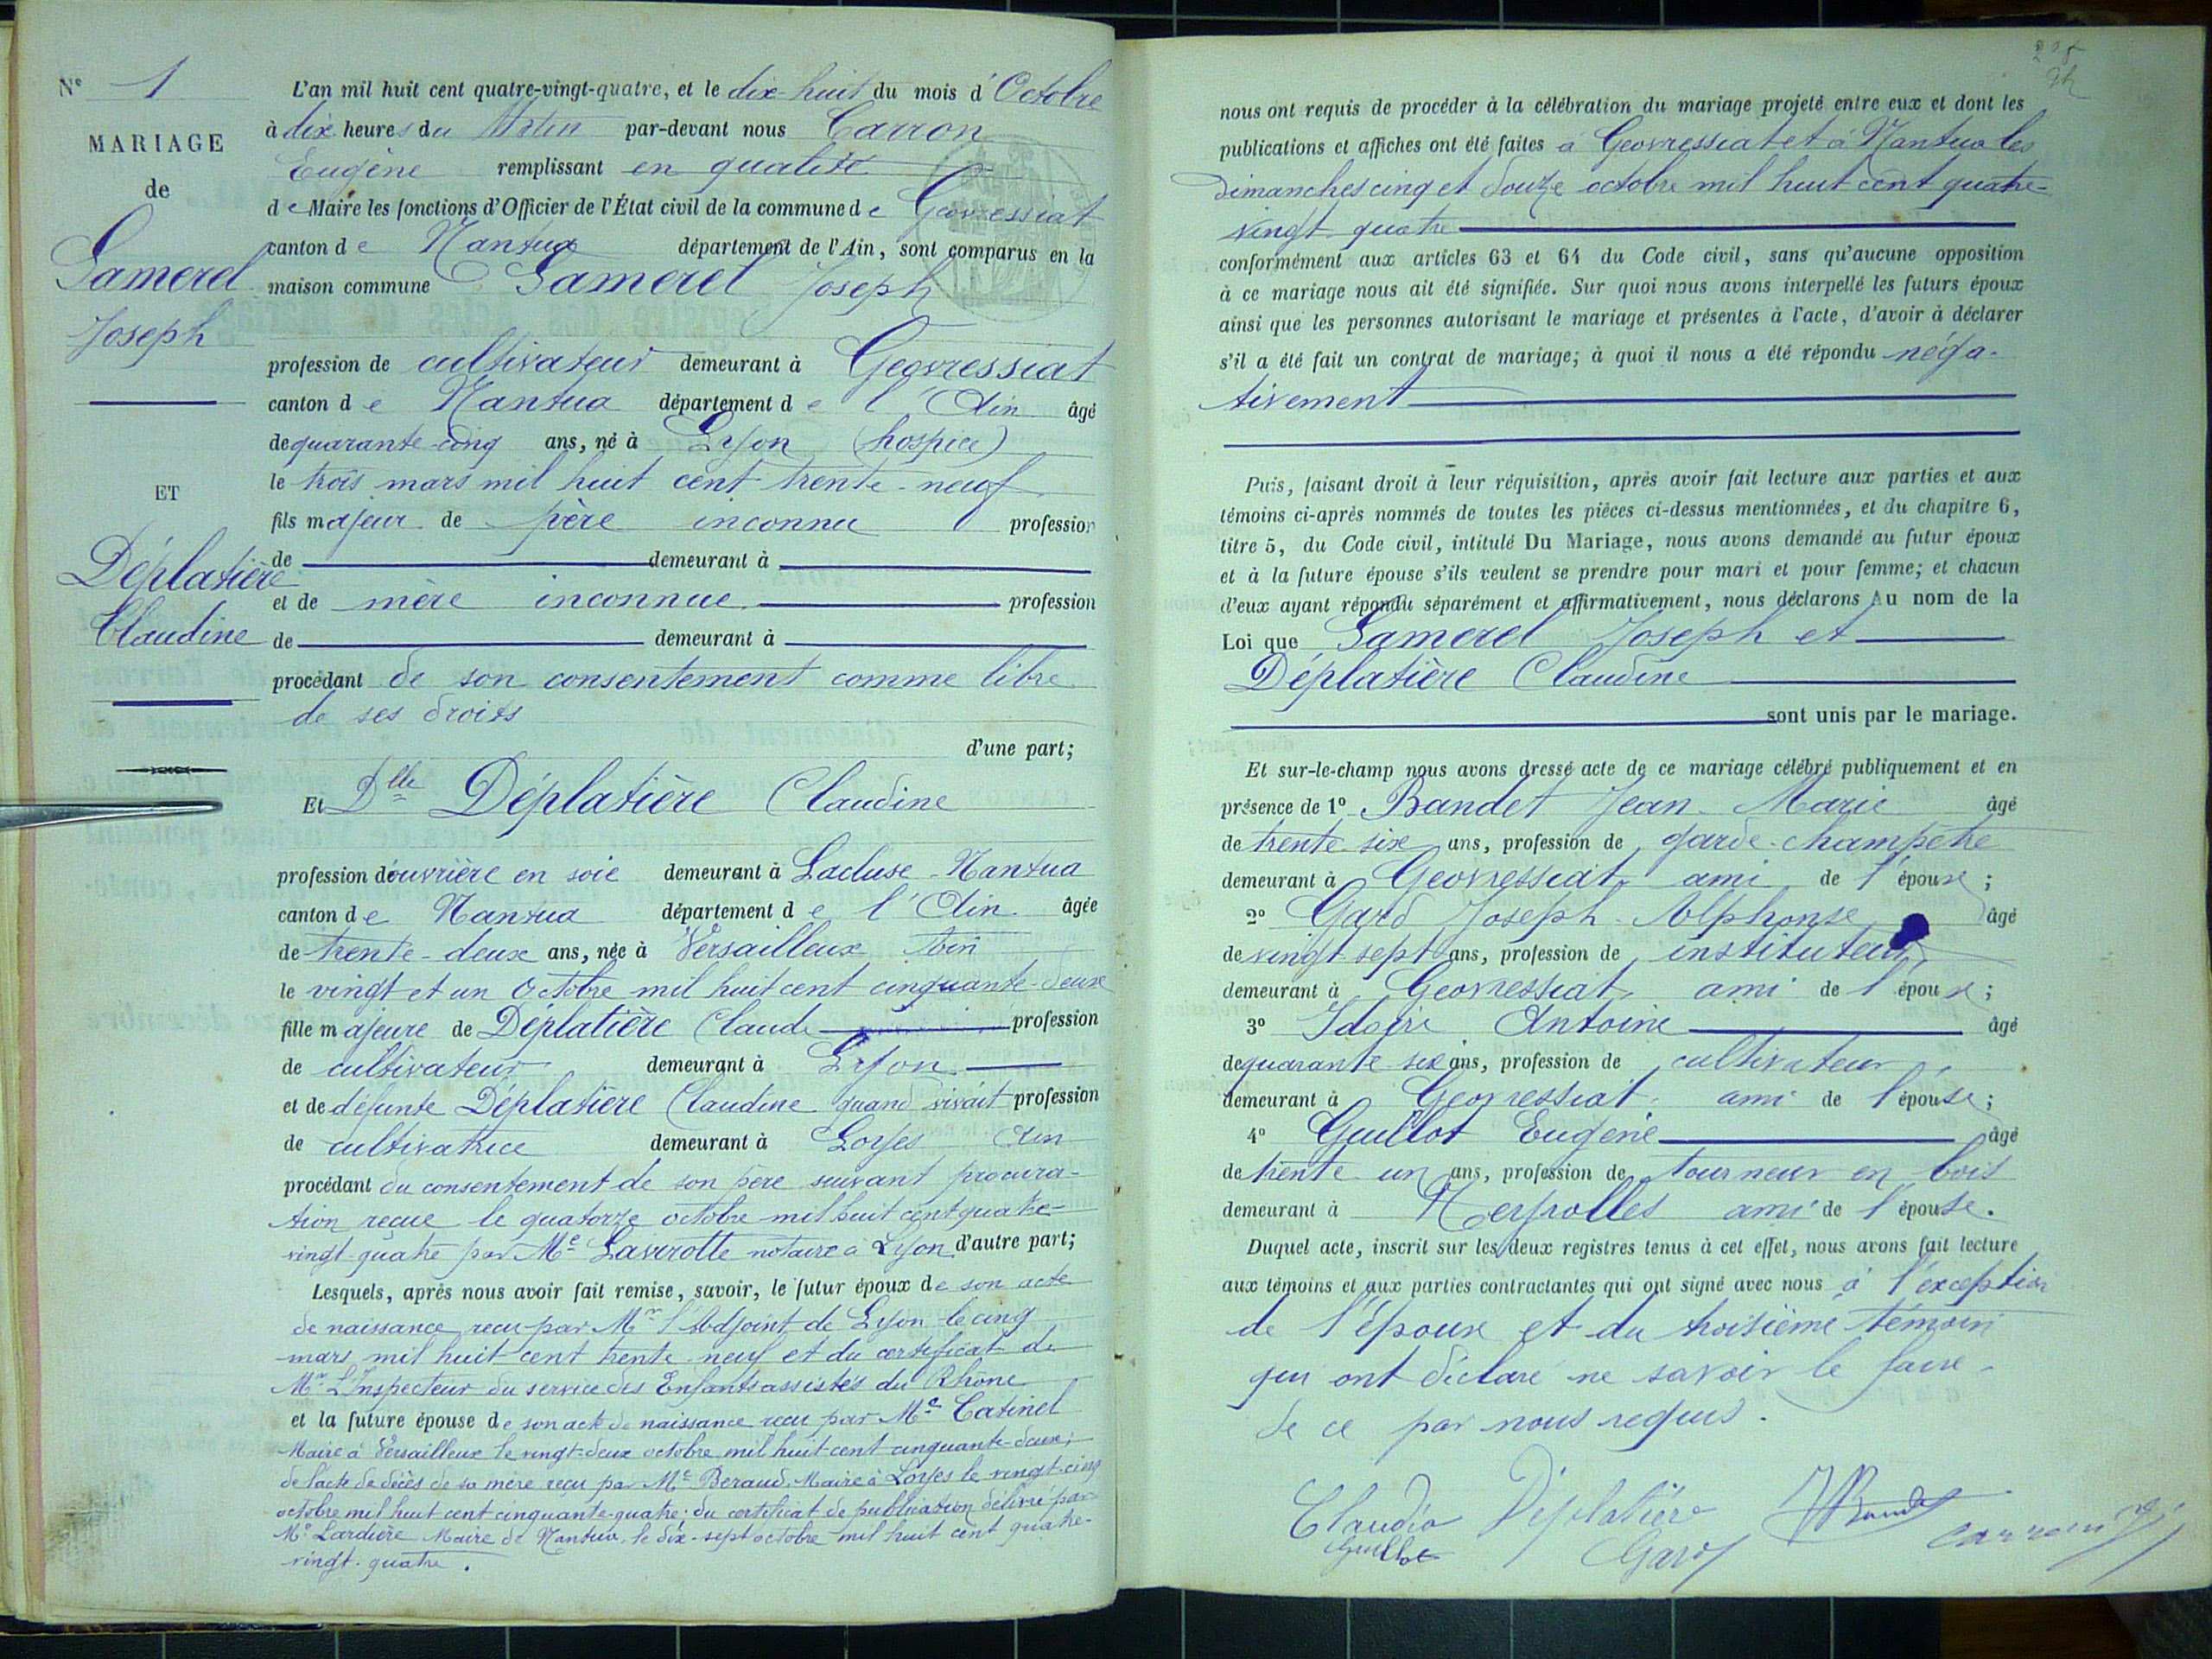 N° 1
MARIAGE
de
Samerel
Joseph
ET
Déplatière
Claudine
L'an mil huit cent quatre-vingt-quatre, et le dix-huit du mois d'Octobre
à dix heures du Matin par-devant nous Carron
Eugène remplissant en qualité
de Maire les fonctions d'Officier de l'État civil de la commune de Geovressiat
canton de Nantua département de l'Ain, sont comparus en la
maison commune Samerel Joseph
profession de cultivateur demeurant à Geovressiat
canton de Nantua département de l'Ain âgé
de quarante-cinq ans, né à Lyon (hospice)
le trois mars mil huit cent trente-neuf
fils majeur de père inconnu profession
de demeurant à
et de mère inconnue profession
de demeurant à
procédant de son consentement comme libre
de ses droits
d'une part;
Et Dlle Déplatière Claudine
profession d'ouvrière en soie demeurant à Lacluse-Nantua
canton de Nantua département de l'Ain âgée
de trente-deux ans, née à Versailleux Ain
le vingt et un Octobre mil huit cent cinquante-deux
fille majeure de Déplatière Claude profession
de cultivateur demeurant à Lyon
et de défunte Déplatière Claudine quand vivait profession
de cultivatrice demeurant à Loyes Ain
procédant du consentement de son père suivant procura-
tion reçue le quatorze octobre mil huit cent quatre-
vingt-quatre par Me Laverrotte notaire à Lyon d'autre part;
Lesquels, après nous avoir fait remise, savoir, le futur époux de son acte
de naissance reçu par Mr l'Adjoint de Lyon le cinq
mars mil huit cent trente-neuf et du certificat de
Mr L'Inspecteur du service des Enfants assistés du Rhône
et la future épouse de son acte de naissance reçu par Me Catinel
Maire à Versailleux le vingt-deux octobre mil huit cent cinquante-deux;
de l'acte de décès de sa mère reçu par Me Beraud Maire à Loyes le vingt-cinq
octobre mil huit cent cinquante-quatre; du certificat de publication délivré par
Me Lardière Maire de Nantua le dix-sept octobre mil huit cent quatre-
vingt-quatre.
nous ont requis de procéder à la célébration du mariage projeté entre eux et dont les
publications et affiches ont été faites à Geovressiat et à Nantua les
Dimanches cinq et douze octobre mil huit cent quatre-
vingt-quatre
conformément aux articles 63 et 64 du Code civil, sans qu'aucune opposition
à ce mariage nous ait été signifiée. Sur quoi nous avons interpellé les futurs époux
ainsi que les personnes autorisant le mariage et présentes à l'acte, d'avoir à déclarer
s'il a été fait un contrat de mariage; à quoi il nous a été répondu néga-
tivement
Puis, faisant droit à leur réquisition, après avoir fait lecture aux parties et aux
témoins ci-après nommés de toutes les pièces ci-dessus mentionnées, et du chapitre 6,
titre 5, du Code civil, intitulé Du Mariage, nous avons demandé au futur époux
et à la future épouse s'ils veulent se prendre pour mari et pour femme; et chacun
d'eux ayant répondu séparément et affirmativement, nous déclarons Au nom de la
Loi que Samerel Joseph et
Déplatière Claudine
sont unis par le mariage.
Et sur-le-champ nous avons dressé acte de ce mariage célébré publiquement et en
présence de 1° Bandet Jean-Marie âgé
de trente-six ans, profession de garde-champêtre
demeurant à Geovressiat ami de l'épouse;
2° Gard Joseph-Alphonse âgé
de vingt-sept ans, profession de instituteur
demeurant à Geovressiat, ami de l'épouse;
3° Antoine âgé
de quarante six ans, profession de cultivateur,
demeurant à Geovressiat, ami de l'épouse;
4° Guillot Eugène âgé
de trente-un ans, profession de tourneur en bois
demeurant à Neyrolles ami de l'épouse.
Duquel acte, inscrit sur les deux registres tenus à cet effet, nous avons fait lecture
aux témoins et aux parties contractantes qui ont signé avec nous à l'exception
de l'époux et du troisième témoin
qui ont déclaré ne savoir le faire
de ce par nous requis.
Claudia Déplatière
Guillot Gard Carron